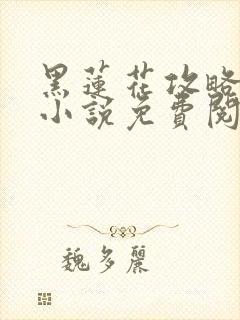 黑蓮花攻略
小說免費閱
魏多麗